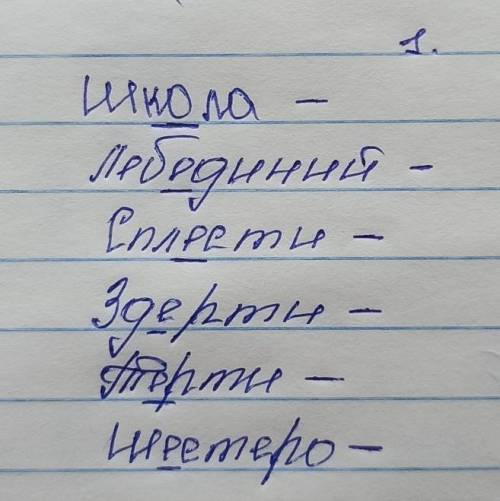 1.
Школа -
Лебединий -
Сплести -
Здерти -
Терти -
Шестеро -